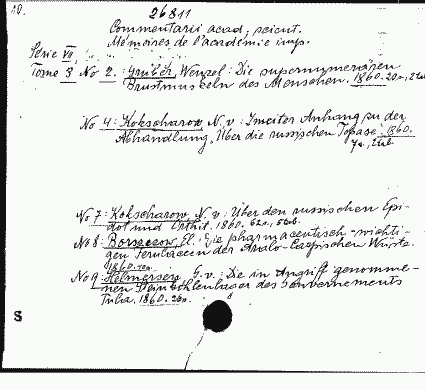 20.
26811
Commentarii acad. scient.
Mémoires de l'académie imp.
Serie VII
Tome 3 No 2. : Gruber, Wenzel: Die supernumerären
Brustmuskeln des Menschen. 1860. 20 s., 2 tab.
No 4: Kokscharow N. v: Zweiter Anhang zu der
Abhandlung, Über die russischen Topase. 1860.
7 s., 2 tab.
No 7: Kokscharow, N. v: Über den russischen Epi-
dot und Orthit. 1860. 62 s., 5 tab.
No 8: Borszczow, El.: Die pharmaceutisch-wichti-
gen Ferulaceen der Aralo-Caspischen Wüste.
1860.
No 9: Helmersen G. v.: Die in Angriff genomme-
nen Steinkohlenlager des Gouvernements
Tula. 1860.
S